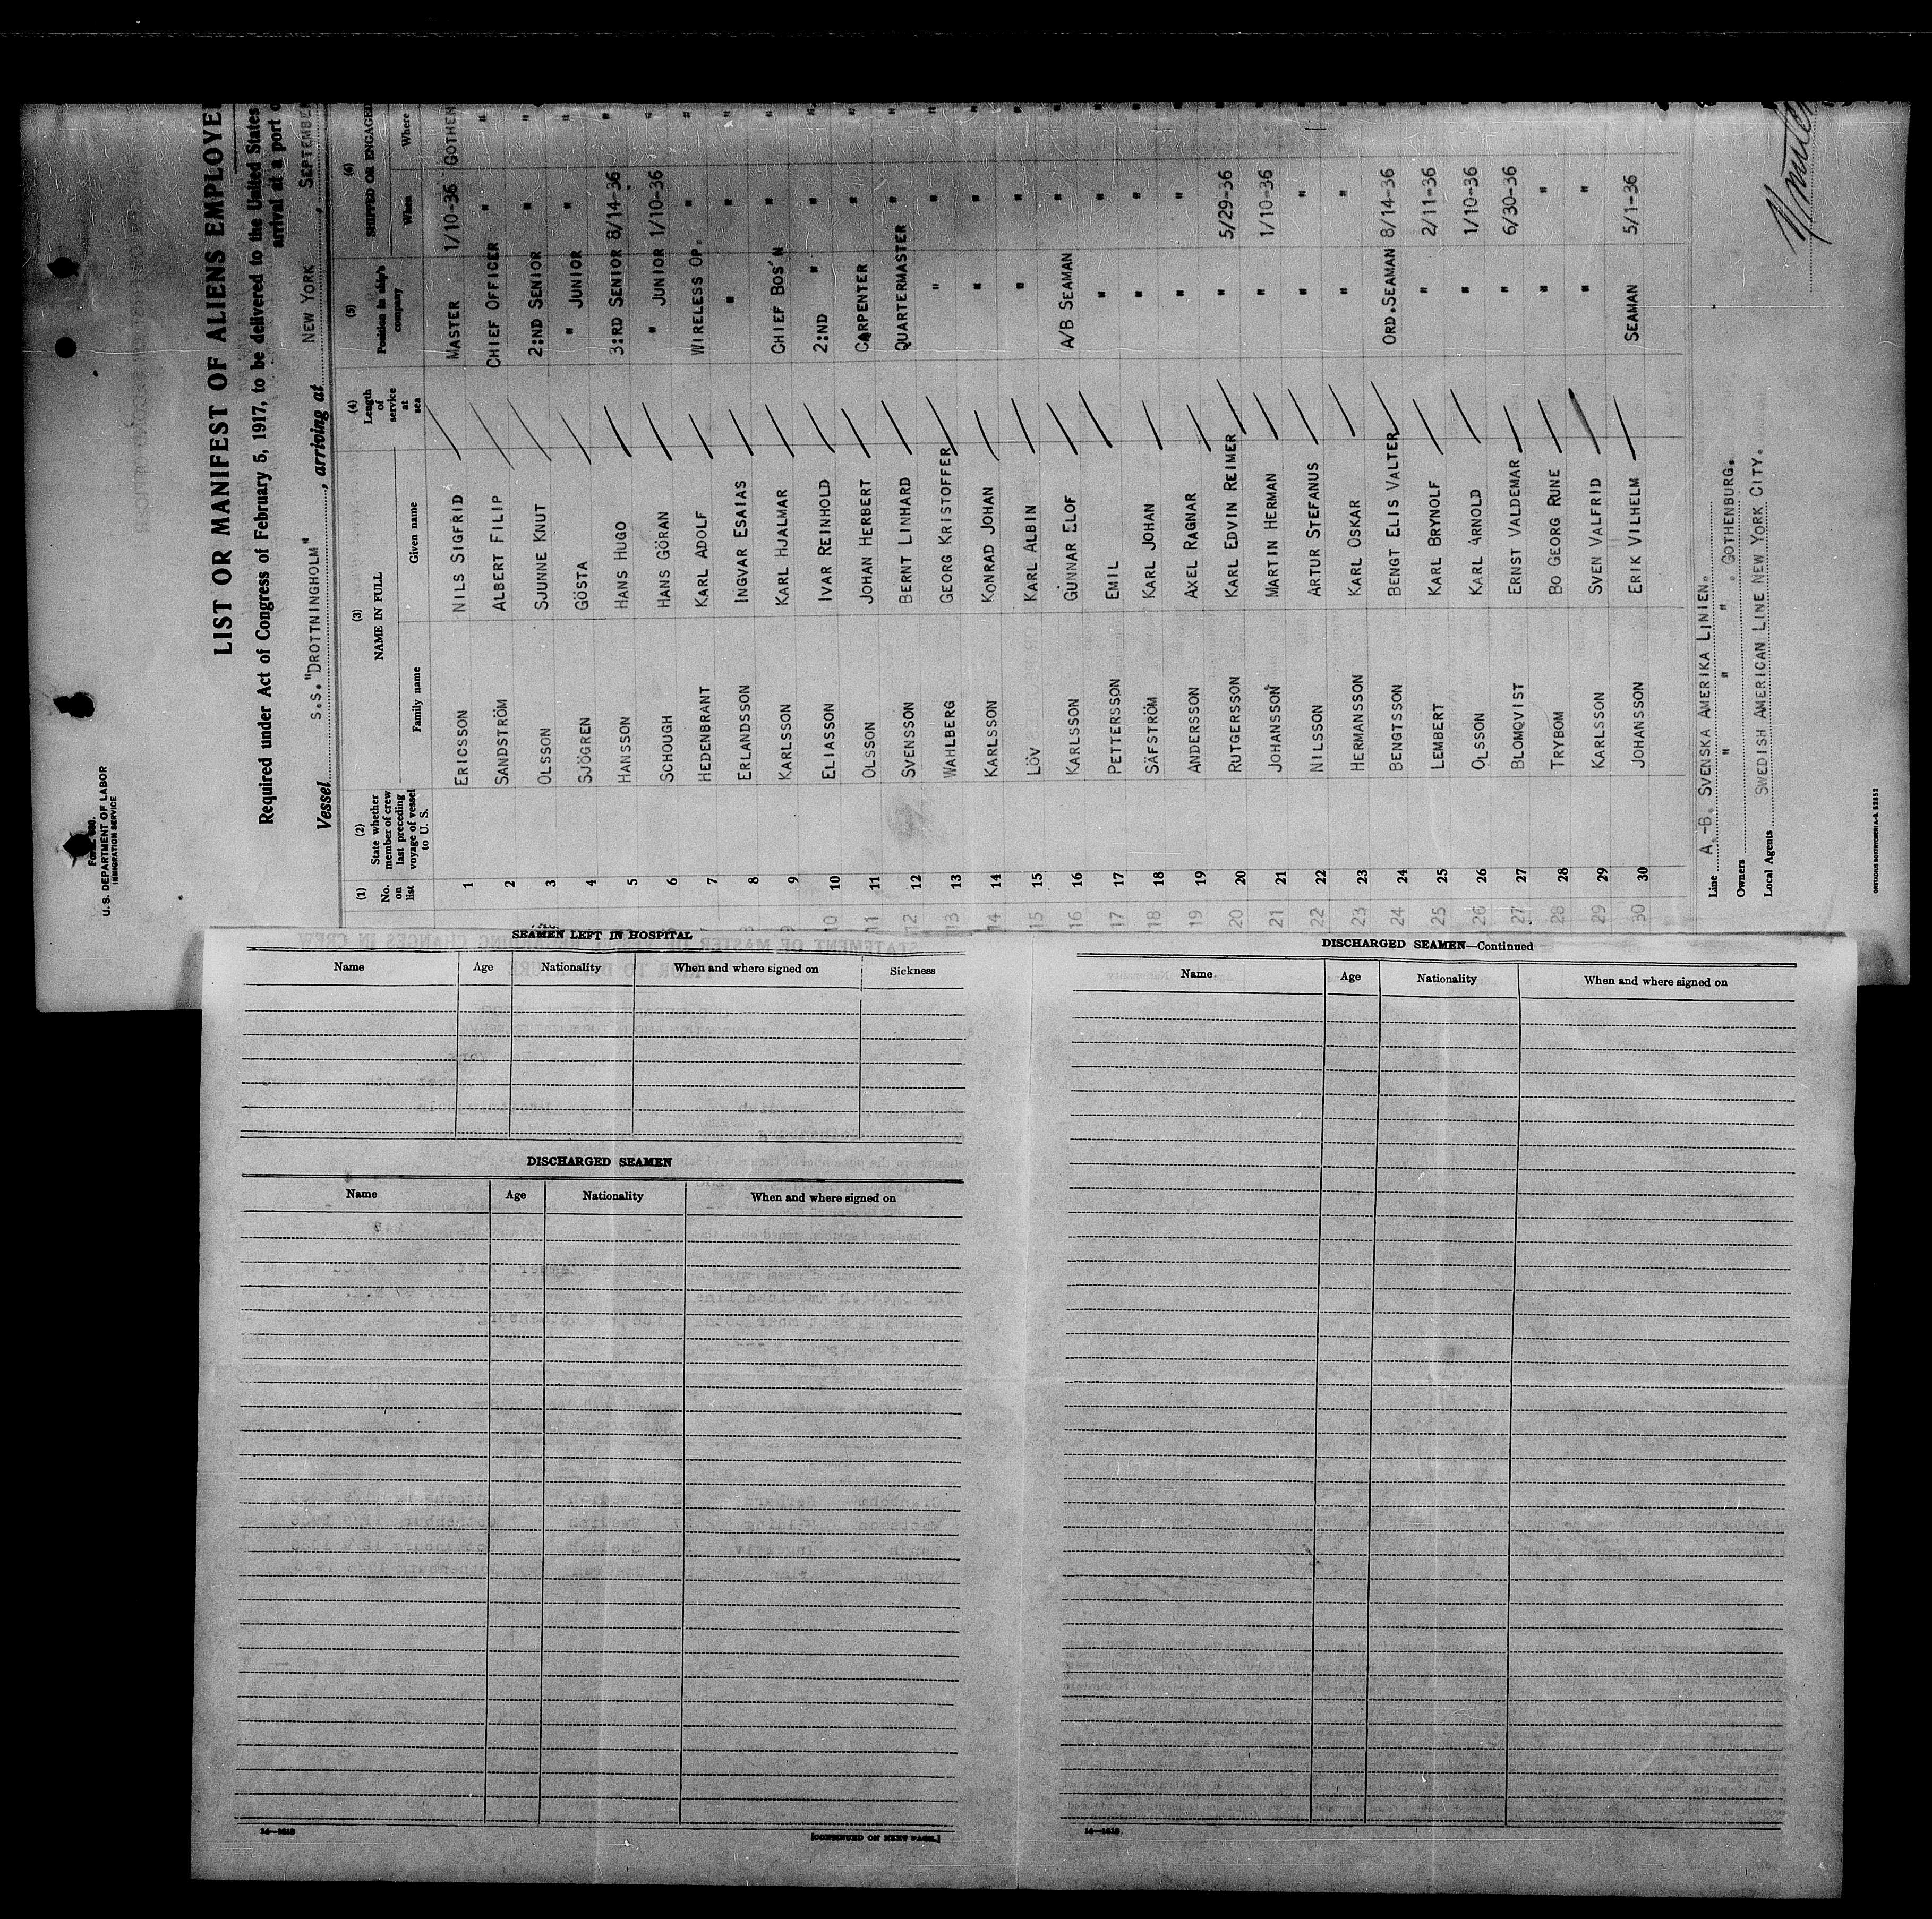 Form 680.
U. S. DEPARTMENT OF LABOR
IMMIGRATION SERVICE
LIST OR MANIFEST OF ALIENS EMPLOYE
Required under Act of Congress of February 5, 1917, to be delivered to the United States
arrival at a port o
Vessel S.S. "DROTTNINGHOLM", arriving at NEW YORK, SEPTEMBE
(1) No. on list (2) State whether member of crew last preceding voyage of vessel to U. S. (3) NAME IN FULL Family name Given name (4) Length of service at sea (5) Position in ship's company (6) SHIPPED OR ENGAGED When Where
1 ERICSSON NILS SIGFRID MASTER 1/10-36 GOTHEN
2 SANDSTRÖM ALBERT FILIP CHIEF OFFICER " "
3 OLSSON SJUNNE KNUT 2:ND SENIOR " "
4 SJÖGREN GÖSTA " JUNIOR " "
5 HANSSON HANS HUGO 3:RD SENIOR 8/14-36 "
6 SCHOUGH HANS GÖRAN " JUNIOR 1/10-36 "
7 HEDENBRANT KARL ADOLF WIRELESS OP. " "
8 ERLANDSSON INGVAR ESAIAS " " "
9 KARLSSON KARL HJALMAR CHIEF BOS'N " "
10 ELIASSON IVAR REINHOLD 2:ND " " "
11 OLSSON JOHAN HERBERT CARPENTER " "
12 SVENSSON BERNT LINHARD QUARTERMASTER " "
13 WAHLBERG GEORG KRISTOFFER " " "
14 KARLSSON KONRAD JOHAN " " "
15 LÖV KARL ALBIN " " "
16 KARLSSON GUNNAR ELOF A/B SEAMAN " "
17 PETTERSSON EMIL " " "
18 SÄFSTRÖM KARL JOHAN " " "
19 ANDERSSON AXEL RAGNAR " " "
20 RUTGERSSON KARL EDVIN REIMER " 5/29-36 "
21 JOHANSSON MARTIN HERMAN " 1/10-36 "
22 NILSSON ARTUR STEFANUS " " "
23 HERMANSSON KARL OSKAR " " "
24 BENGTSSON BENGT ELIS VALTER ORD.SEAMAN 8/14-36 "
25 LEMBERT KARL BRYNOLF " 2/11-36 "
26 OLSSON KARL ARNOLD " 1/10-36 "
27 BLOMQVIST ERNST VALDEMAR " 6/30-36 "
28 TRYBOM BO GEORG RUNE " " "
29 KARLSSON SVEN VALFRID " " "
30 JOHANSSON ERIK VILHELM SEAMAN 5/1-36 "
Line A.-B. SVENSKA AMERIKA LINIEN.
Owners " " " . GOTHENBURG.
Local Agents SWEDISH AMERICAN LINE NEW YORK CITY.
SEAMEN LEFT IN HOSPITAL
Name Age Nationality When and where signed on Sickness
DISCHARGED SEAMEN
Name Age Nationality When and where signed on
14—1619
[CONTINUED ON NEXT PAGE.]
DISCHARGED SEAMEN—Continued
Name Age Nationality When and where signed on
14—1619